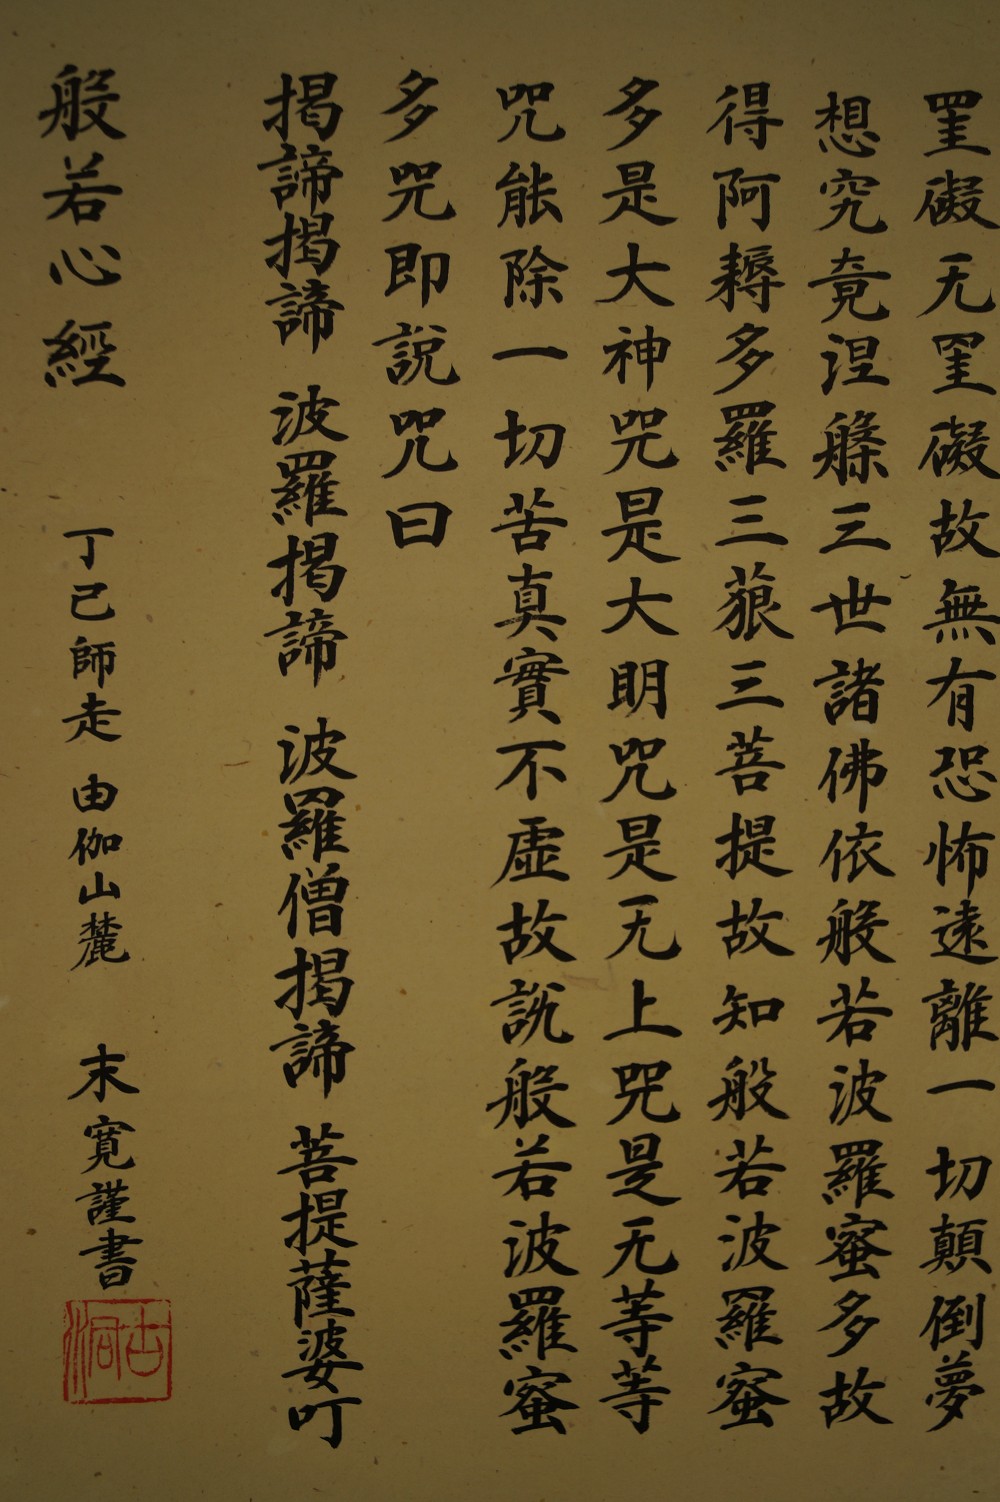 罣礙无罣礙故無有恐怖遠離一切顛倒夢
想究竟涅槃三世諸佛依般若波羅蜜多故
得阿耨多羅三藐三菩提故知般若波羅蜜
多是大神咒是大明咒是无上咒是无等等
咒能除一切苦真實不虛故說般若波羅蜜
多咒即說咒曰
揭諦揭諦 波羅揭諦 波羅僧揭諦 菩提薩婆叮
般若心經 丁巳師走 由伽山麓 末寛謹書
古洞